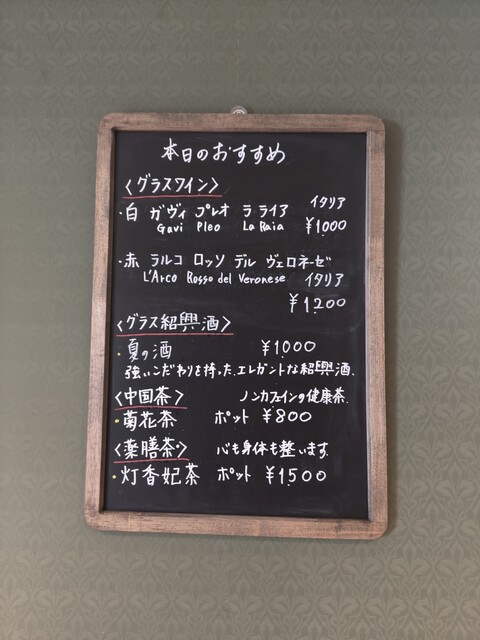 本日のおすすめ
〈グラスワイン〉
・白 ガヴィ プレオ ラ ライア イタリア
Gavi Pleo La Raia ¥1000
・赤 ラルコ ロッソ デル ヴェロネーゼ
L'Arco Rosso del Veronese イタリア
¥1200
〈グラス紹興酒〉
・夏の酒 ¥1000
強いこだわりを持った、エレガントな紹興酒、
〈中国茶〉 ノンカフェインの健康茶、
・菊花茶 ポット ¥800
〈薬膳茶・〉 心も身体も整います。
・灯香妃茶 ポット ¥1500